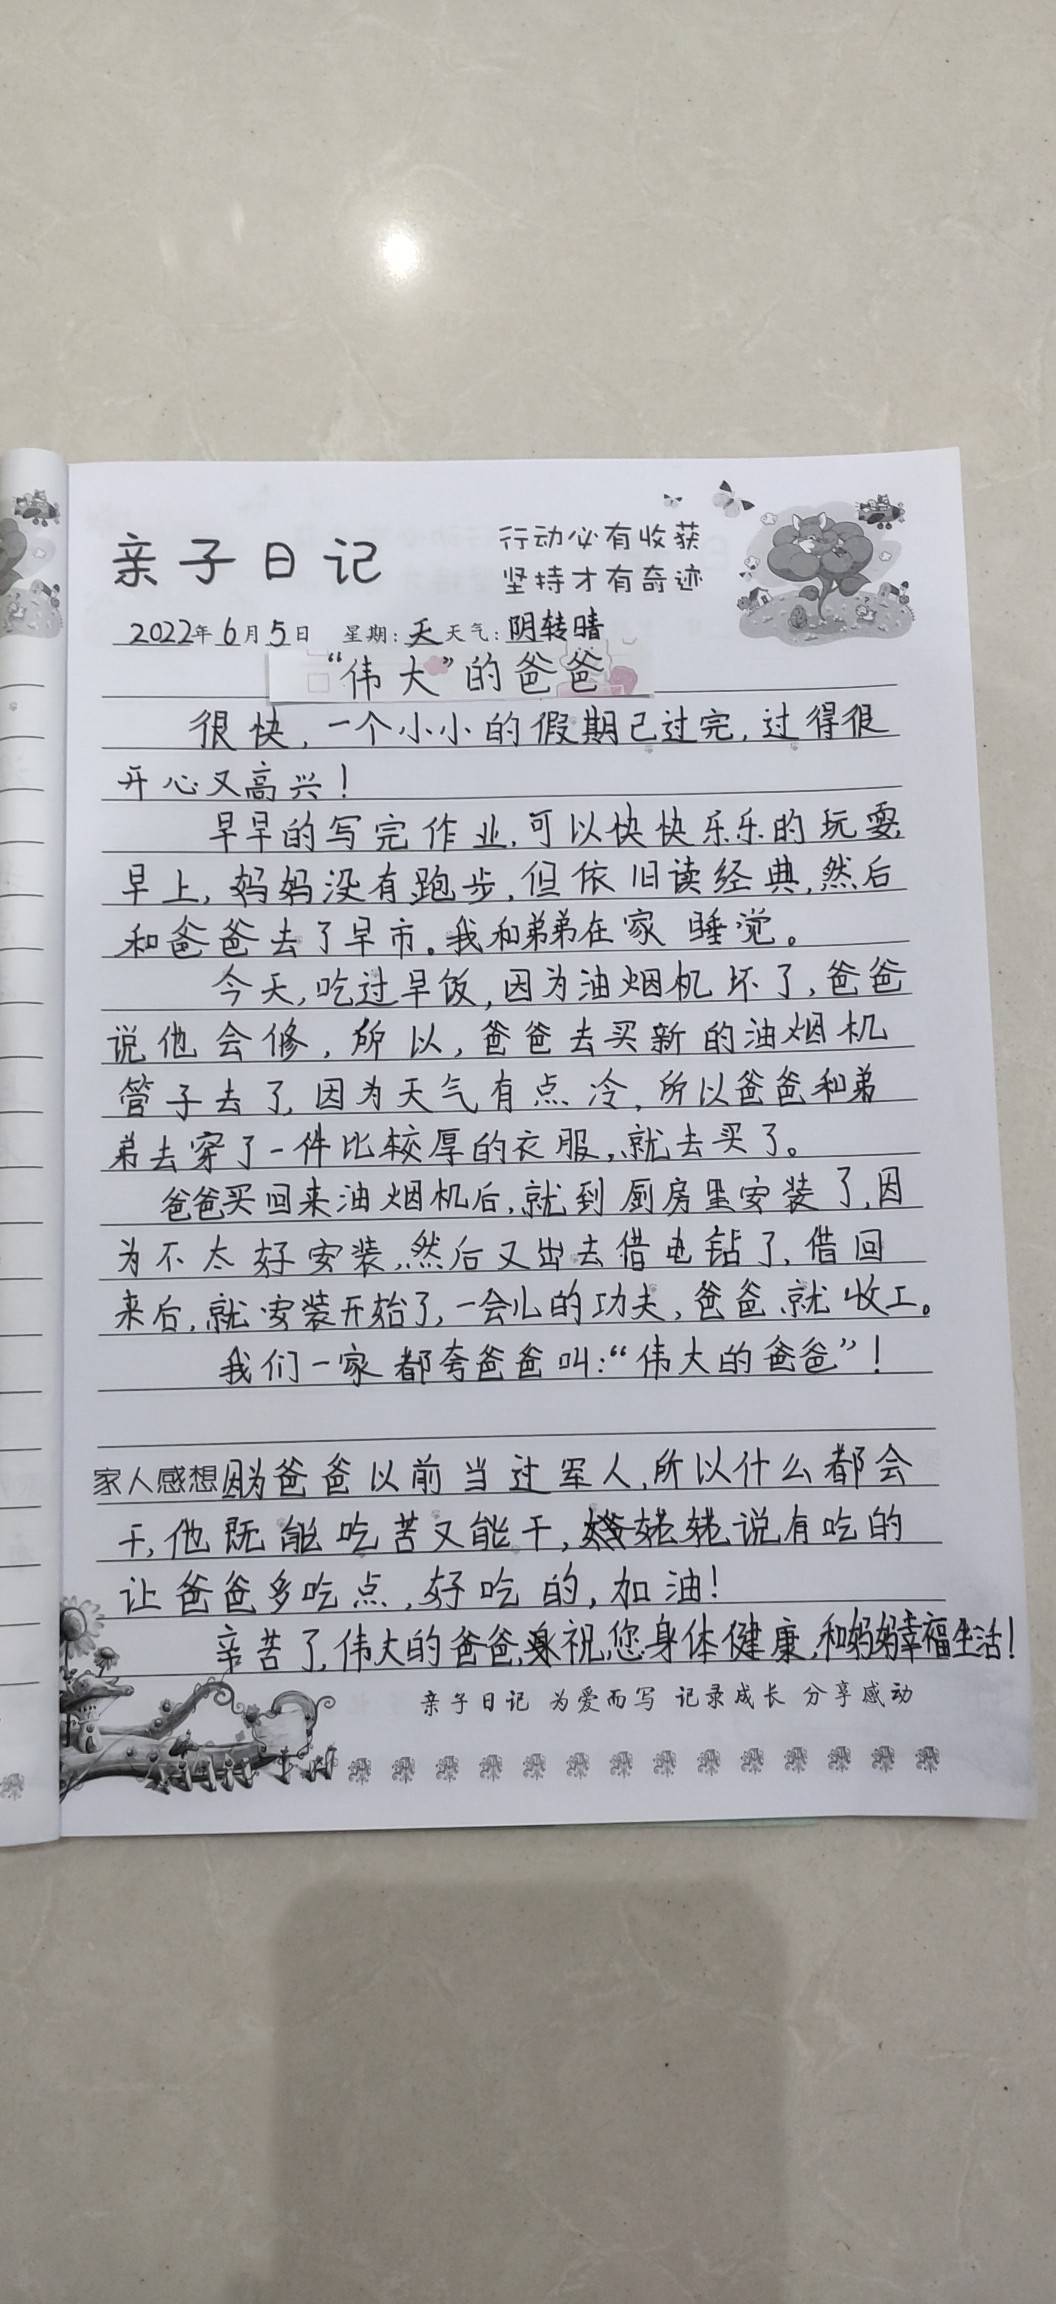 亲子日记
行动必有收获
坚持才有奇迹
2022年6月5日 星期:天 天气:阴转晴
“伟大”的爸爸
很快,一个小小的假期已过完,过得很
开心又高兴!
早早的写完作业,可以快快乐乐的玩耍,
早上,妈妈没有跑步,但依旧读经典,然后
和爸爸去了早市。我和弟弟在家睡觉。
今天,吃过早饭,因为油烟机坏了,爸爸
说他会修,所以,爸爸去买新的油烟机
管子去了,因为天气有点冷,所以爸爸和弟
弟去穿了一件比较厚的衣服,就去买了。
爸爸买回来油烟机后,就到厨房里安装了,因
为不太好安装,然后又出去借电钻了,借回
来后,就安装开始了,一会儿的功夫,爸爸就收工。
我们一家都夸爸爸叫:“伟大的爸爸”!
家人感想 因为爸爸以前当过军人,所以什么都会
干,他既能吃苦又能干,姥姥说有吃的
让爸爸多吃点,好吃的,加油!
辛苦了,伟大的爸爸,祝,您,身体健康,和妈妈幸福生活!
亲子日记 为爱而写 记录成长 分享感动